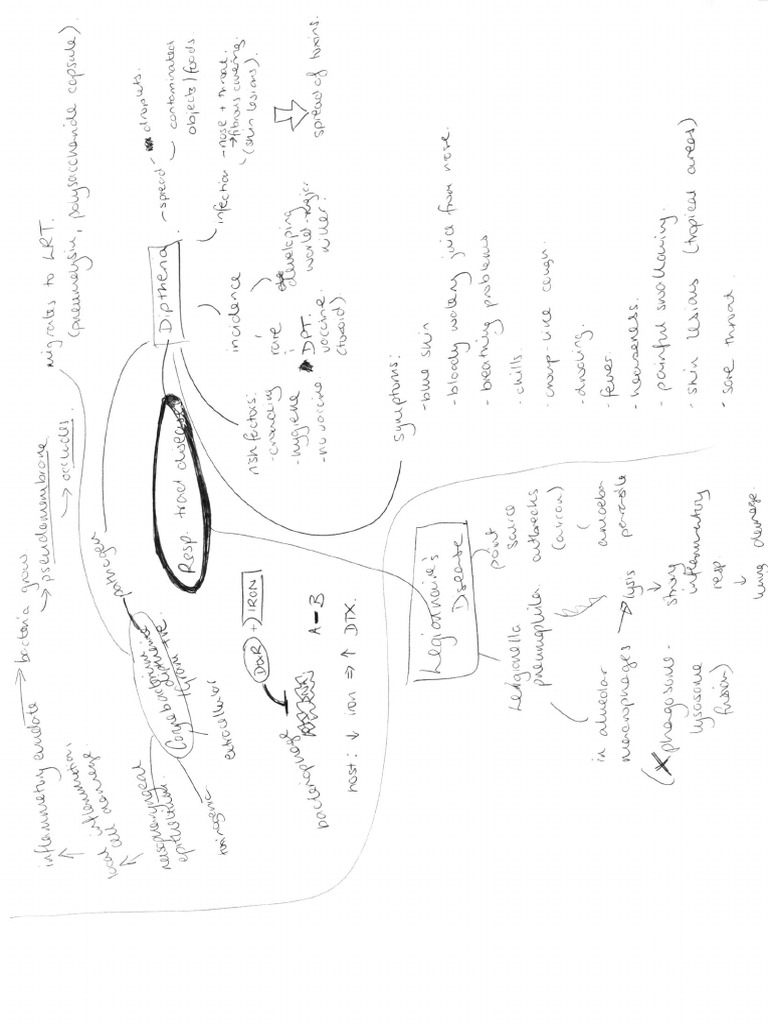 Resp. tract disease
Diptheria
- spread - droplets.
contaminated
objects/foods
infection - nose + throat
→ fibrous covering
(skin lesions).
spread of toxins.
incidence
rare
DPT.
vaccine
(toxoid)
developing
world - major
killer.
risk factors:
- crowding
- hygiene
- no vaccine
symptoms:
- blue skin
- bloody watery juice from nose.
- breathing problems
- chills.
- croup-like cough.
- drooling.
- fever.
- hoarseness.
- painful swallowing.
- skin lesions (tropical areas)
- sore throat.
pathogen
Corynebacterium
diptheriae
Gram +ve.
migrates to LRT.
(pneumolysin, polysaccharide capsule).
nasopharyngeal
epithelium.
local
cell damage.
inflammation.
inflammatory exudate → bacteria grow
→ pseudomembrane
→ occludes.
toxinogenic
extracellular
bacteriophage
DtxR + IRON
A-B
host: ↓ iron ⇒ ↑ DTX.
Legionnaire's
Disease
point
source
outbreaks
(aircon)
Leigonella
pneumophila.
(amoeba
in alveolar
macrophages → lysis
↓
strong
inflammatory
resp.
↓
lung damage.
(X phagosome-
lysosome
fusion)